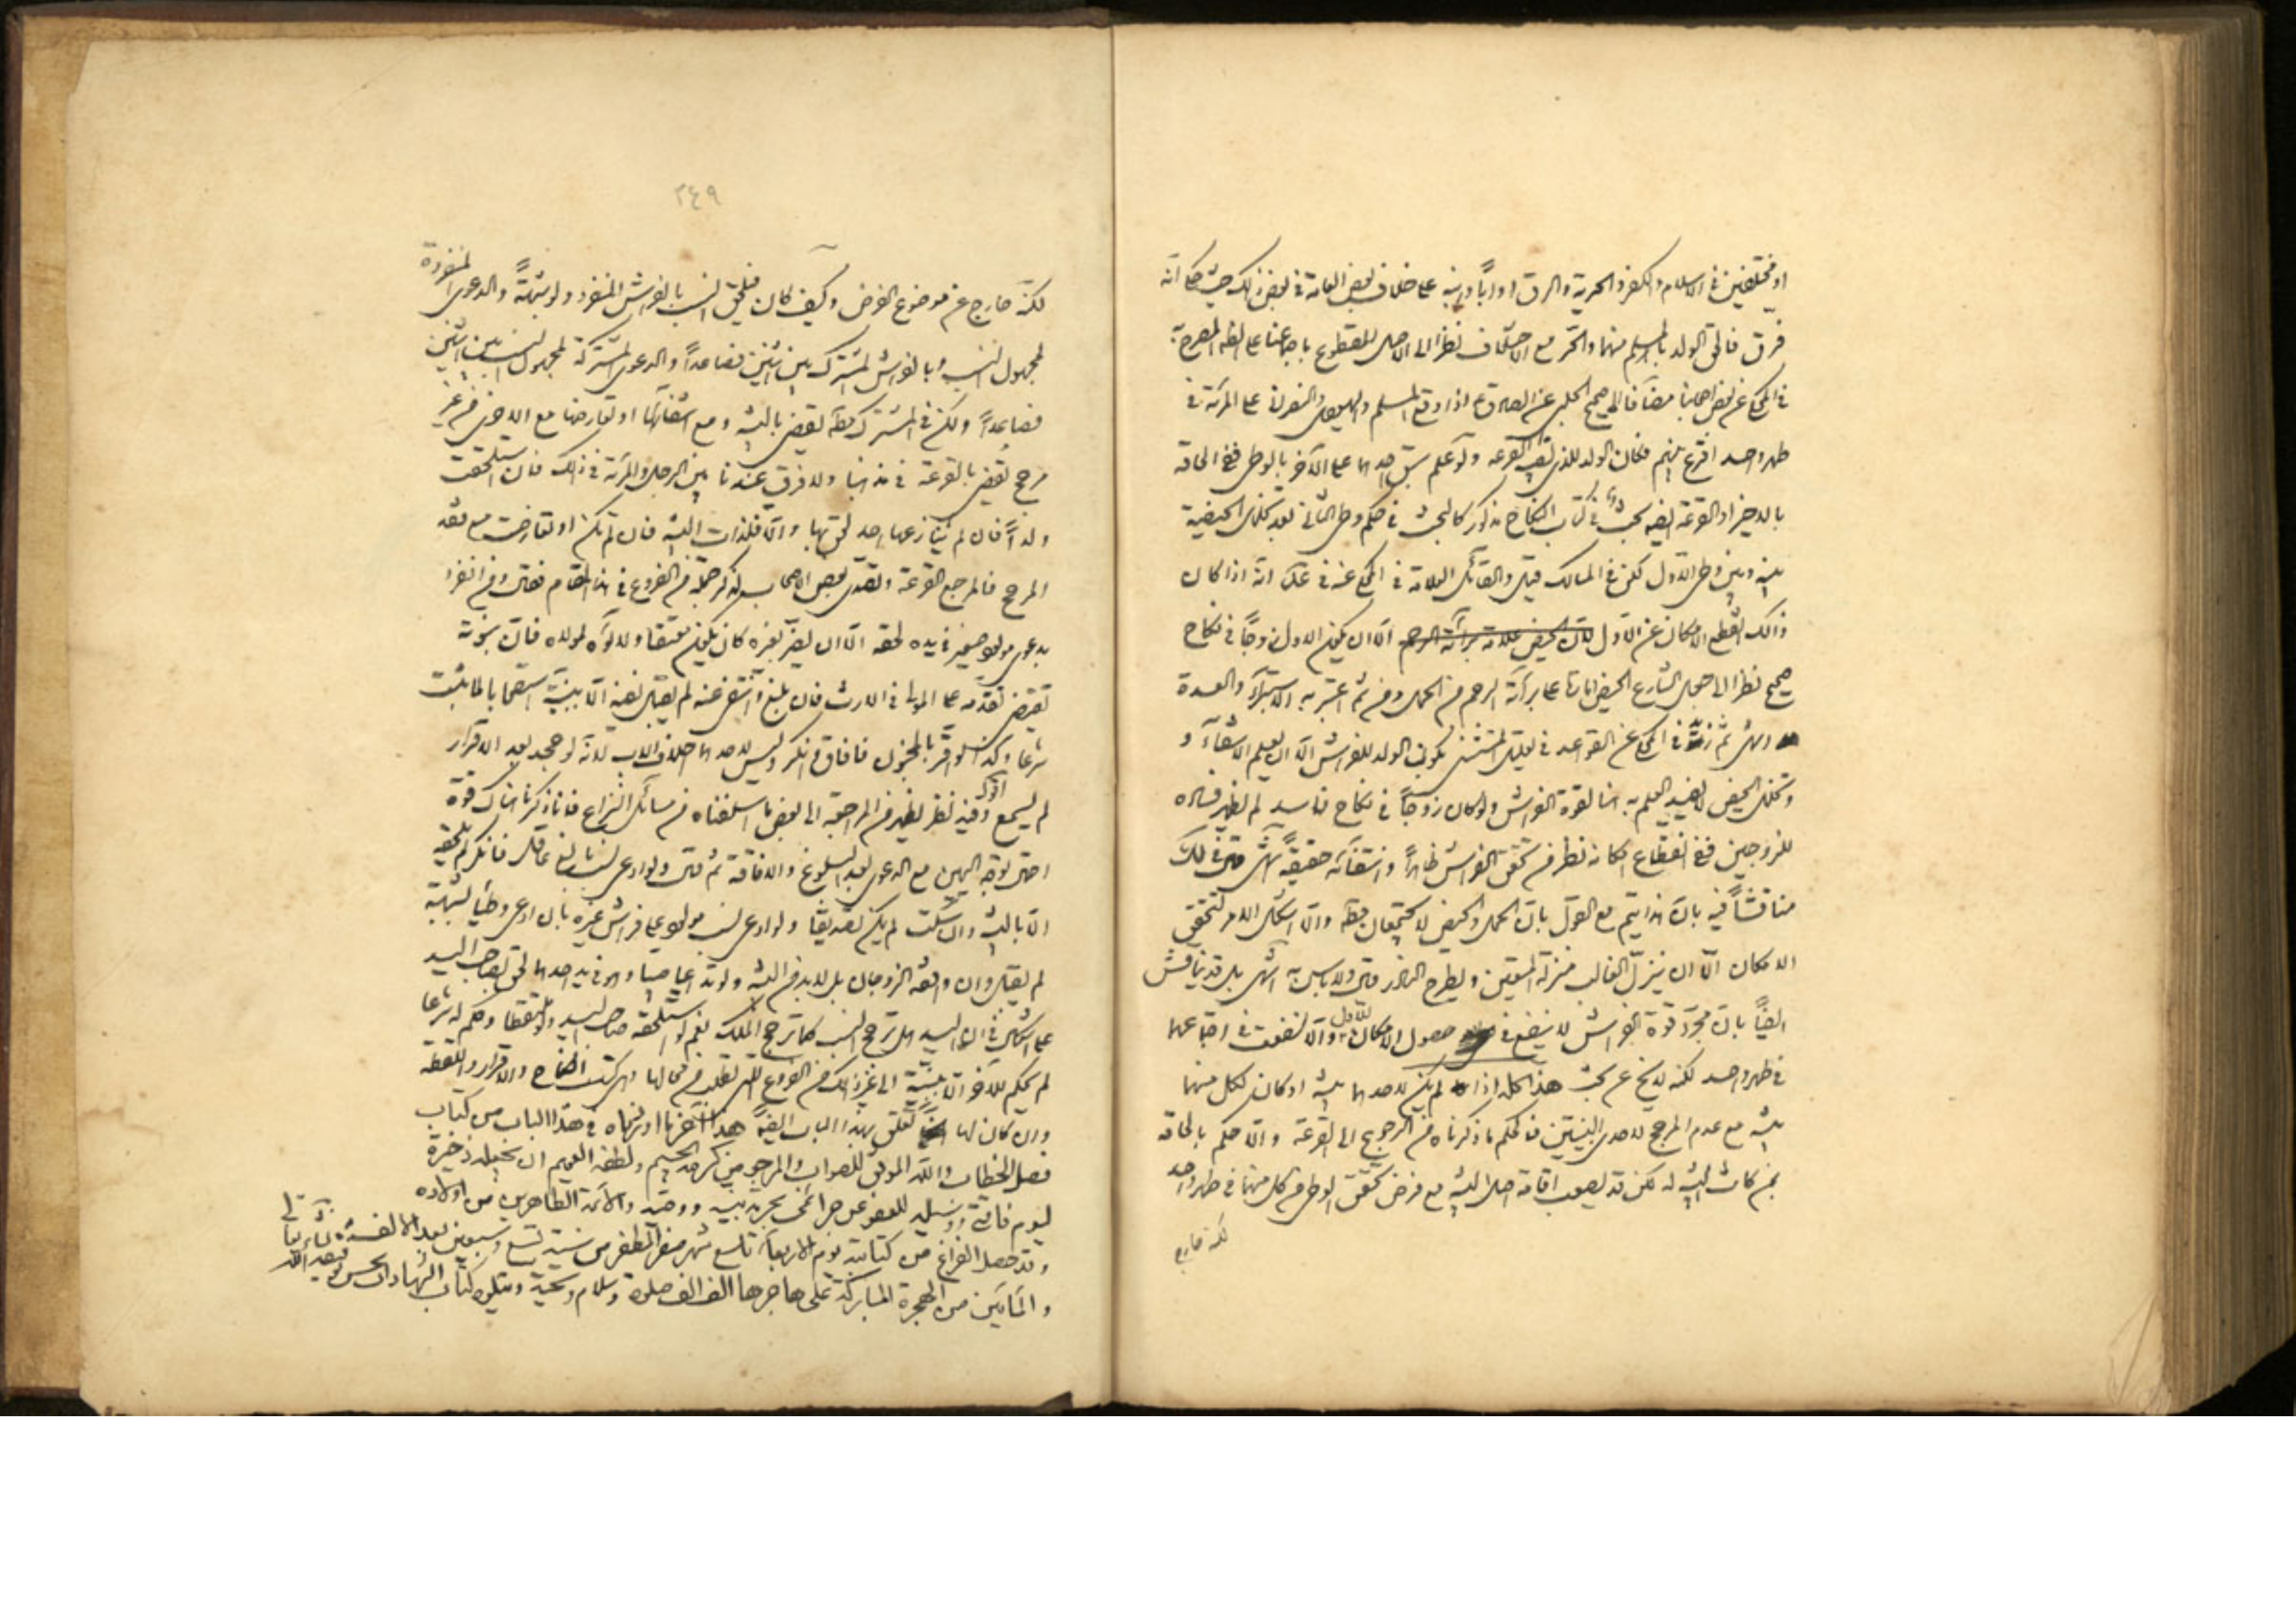 او مختلفين في الاسلام والكفر والحرية والرق او اباً وابنه على خلاف بعض العامة في بعض ذلك حيث حكم انه
فرق فالحق الولد بالمسلم منهما والحر مع الاختلاف نظرا الى الاصل المقطوع باجماعنا على الظ المصرح به
في المحكي عن بعض اصحابنا مضافا الى صحيح الحلبي عن الصادق ع اذا وقع المسلم واليهودي والنصراني على المرأة في
طهر واحد اقرع بينهم فكان الولد للذي تصيبه القرعة ولو علم سبق احدهما على الآخر بالوطي ففي الحاقه
بالاخير او القرعة بينهما بحث في كتاب النكاح مذكور كالبحث في حكم وطي الثاني بعد تخلل الحيضة
بينه وبين وطي الاول لكن في المسالك قيل والقائل العلامة في المحكي عنه في عد انه اذا كان
ذلك انقطع الامكان عن الاول لان الحيض علامة براءة الرحم الا ان يكون الاول زوجاً في نكاح
صحيح نظرا الى جعل الشارع الحيض امارة على براءة الرحم من الحمل ومن ثم اعتبر به الاستبراء والعدة
في المحكي عن القواعد في تعليل المستثنى بكون الولد للفراش الا ان يعلم الانتفاء و
وتخلل الحيض لا يفيد العلم به هنا لقوة الفراش ولو كان زوجاً في نكاح فاسد لم يظهر فساده
للزوجين ففي انقطاع امكانه نظر من تحقق الفراش ظاهراً وانتفائه حقيقةً انتهى وفي ذلك
مناقشاً فيه بان هذا يتم مع القول بان الحمل والحيض لا يجتمعان مطلقا والا اشكل الامر لتحقق
الامكان الا ان ينزل الغالب منزلة المتيقن ويطرح النادر ولا باس به انتهى بل قد يناقش
ايضاً بان مجرد قوة الفراش لا ينفع في حصول الامكان للاول والا لنفعت في اجتماعهما
في طهر واحد لكنه لا يخ عن بحث هذا كله اذا لم يكن لاحدهما بينة او كان لكل منهما
بينة مع عدم المرجح لاحدى البينتين فالحكم ما ذكرناه من الرجوع الى القرعة والا حكم بالحاقه
بمن كانت البينة له لكن قد يصعب اقامة اصل البينة مع فرض تحقق الوطي من كل منهما في طهر واحد
لكنه خارج
٢٤٩
لكنه خارج عن موضوع الفرض وكيف كان فيلحق النسب بالفراش المنفرد ولو شبهةً والدعوى المنفردة
لمجهول النسب وبالفراش المشترك بين اثنين فصاعداً والدعوى المشتركة لمجهول النسب بين اثنين
فصاعداً ولكن في المشترك مطلقا يقضى بالبينة ومع انتفائها او تعارضها مع الاخرى من غير
مرجح يقضى بالقرعة في مذهبنا ولا فرق عندنا بين الرجل والمرأة في ذلك فان استلحقت
ولداً فان لم ينازعها احد لحق بها والا فلذات البينة فان لم تكن او تعارضت مع فقد
المرجح فالمرجع القرعة وتصدى بعض الاصحاب لذكر جملة من الفروع في هذا المقام فقال ومن انفرد
بدعوى مولود صغير في يده لحقه الا ان يضر بغيره كأن يكون معتقا ولاؤه لمولاه فان بنوته
تقتضي تقدمه على المولى في الارث فان بلغ وانتفى عنه لم يقبل نفيه الا ببينة استصحابا لما يثبت
شرعا وكذا لو اقر بالمجنون فافاق فانكر وليس لاحدهما احلاف الاب لانه لو جحد بعد الاقرار
لم يسمع وفيه نظر يظهر من المراجعة الى بعض ما اسلفناه من مسائل النزاع فانا ذكرنا هناك قوة
احتمال توجه اليمين مع الدعوى بعد البلوغ والافاقة ثم قال ولو ادعى نسب بالغ عاقل فانكر لم يلحقه
الا بالبينة وان سكت لم يكن تصديقا ولو ادعى نسب مولود على فراش غيره بان ادعى وطيا لشبهة
لم يقبل وان وافقه الزوجان بل لابد من البينة ولو تداعيا صبيا وهو في يد احدهما لحق بصاحب اليد
على اشكال في ان اليد هل ترجح النسب كما ترجح الملك نعم لو استلحقه صاحب اليد وحكم له شرعا
لم يحكم للآخر الا ببينة الى غير ذلك من الفروع التي تطلب من محالها وهي كتب النكاح والاقرار واللقطة
وان كان لها تعلق بهذا الباب ايضاً هذا آخر ما اوردناه في هذا الباب من كتاب
فصل الخطاب والله الموفق للصواب والمرجو من كرمه الجسيم ولطفه العميم ان يجعله ذخيرة
ليوم فاقتي ووسيلة للعفو عن جرائمي بحرمة نبيه ووصيه والائمة الطاهرين من اولاده
وقد حصل الفراغ من كتابته يوم الاربعاء تاسع شهر صفر المظفر من سنة تسع وسبعين بعد الالف
والمأتين من الهجرة المباركة على هاجرها الف الف صلوة وسلام وتحية ويتلوه كتاب الشهادات